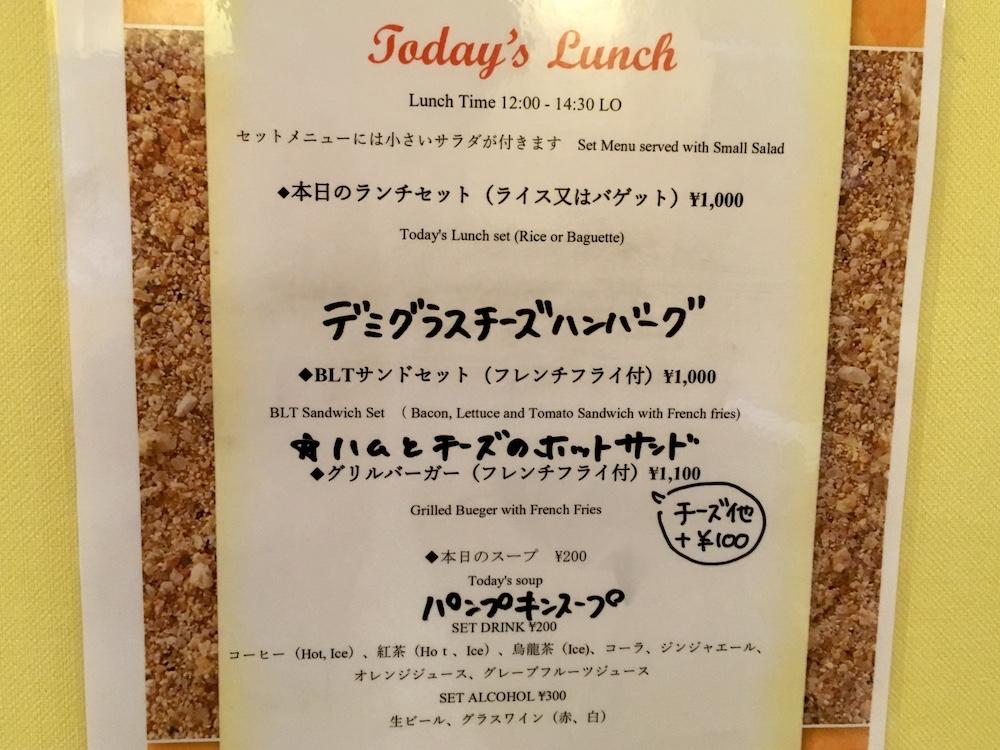 Today's Lunch
Lunch Time 12:00 - 14:30 LO
セットメニューには小さいサラダが付きます Set Menu served with Small Salad
◆本日のランチセット（ライス又はバゲット）¥1,000
Today's Lunch set (Rice or Baguette)
デミグラスチーズハンバーグ
◆BLTサンドセット（フレンチフライ付）¥1,000
BLT Sandwich Set （ Bacon, Lettuce and Tomato Sandwich with French fries)
☆ハムとチーズのホットサンド
◆グリルバーガー（フレンチフライ付）¥1,100
Grilled Bueger with French Fries
チーズ他
+¥100
◆本日のスープ ¥200
Today's soup
パンプキンスープ
SET DRINK ¥200
コーヒー（Hot, Ice）、紅茶（Hoｔ、Ice）、烏龍茶（Ice)、コーラ、ジンジャエール、
オレンジジュース、グレープフルーツジュース
SET ALCOHOL ¥300
生ビール、グラスワイン（赤、白）